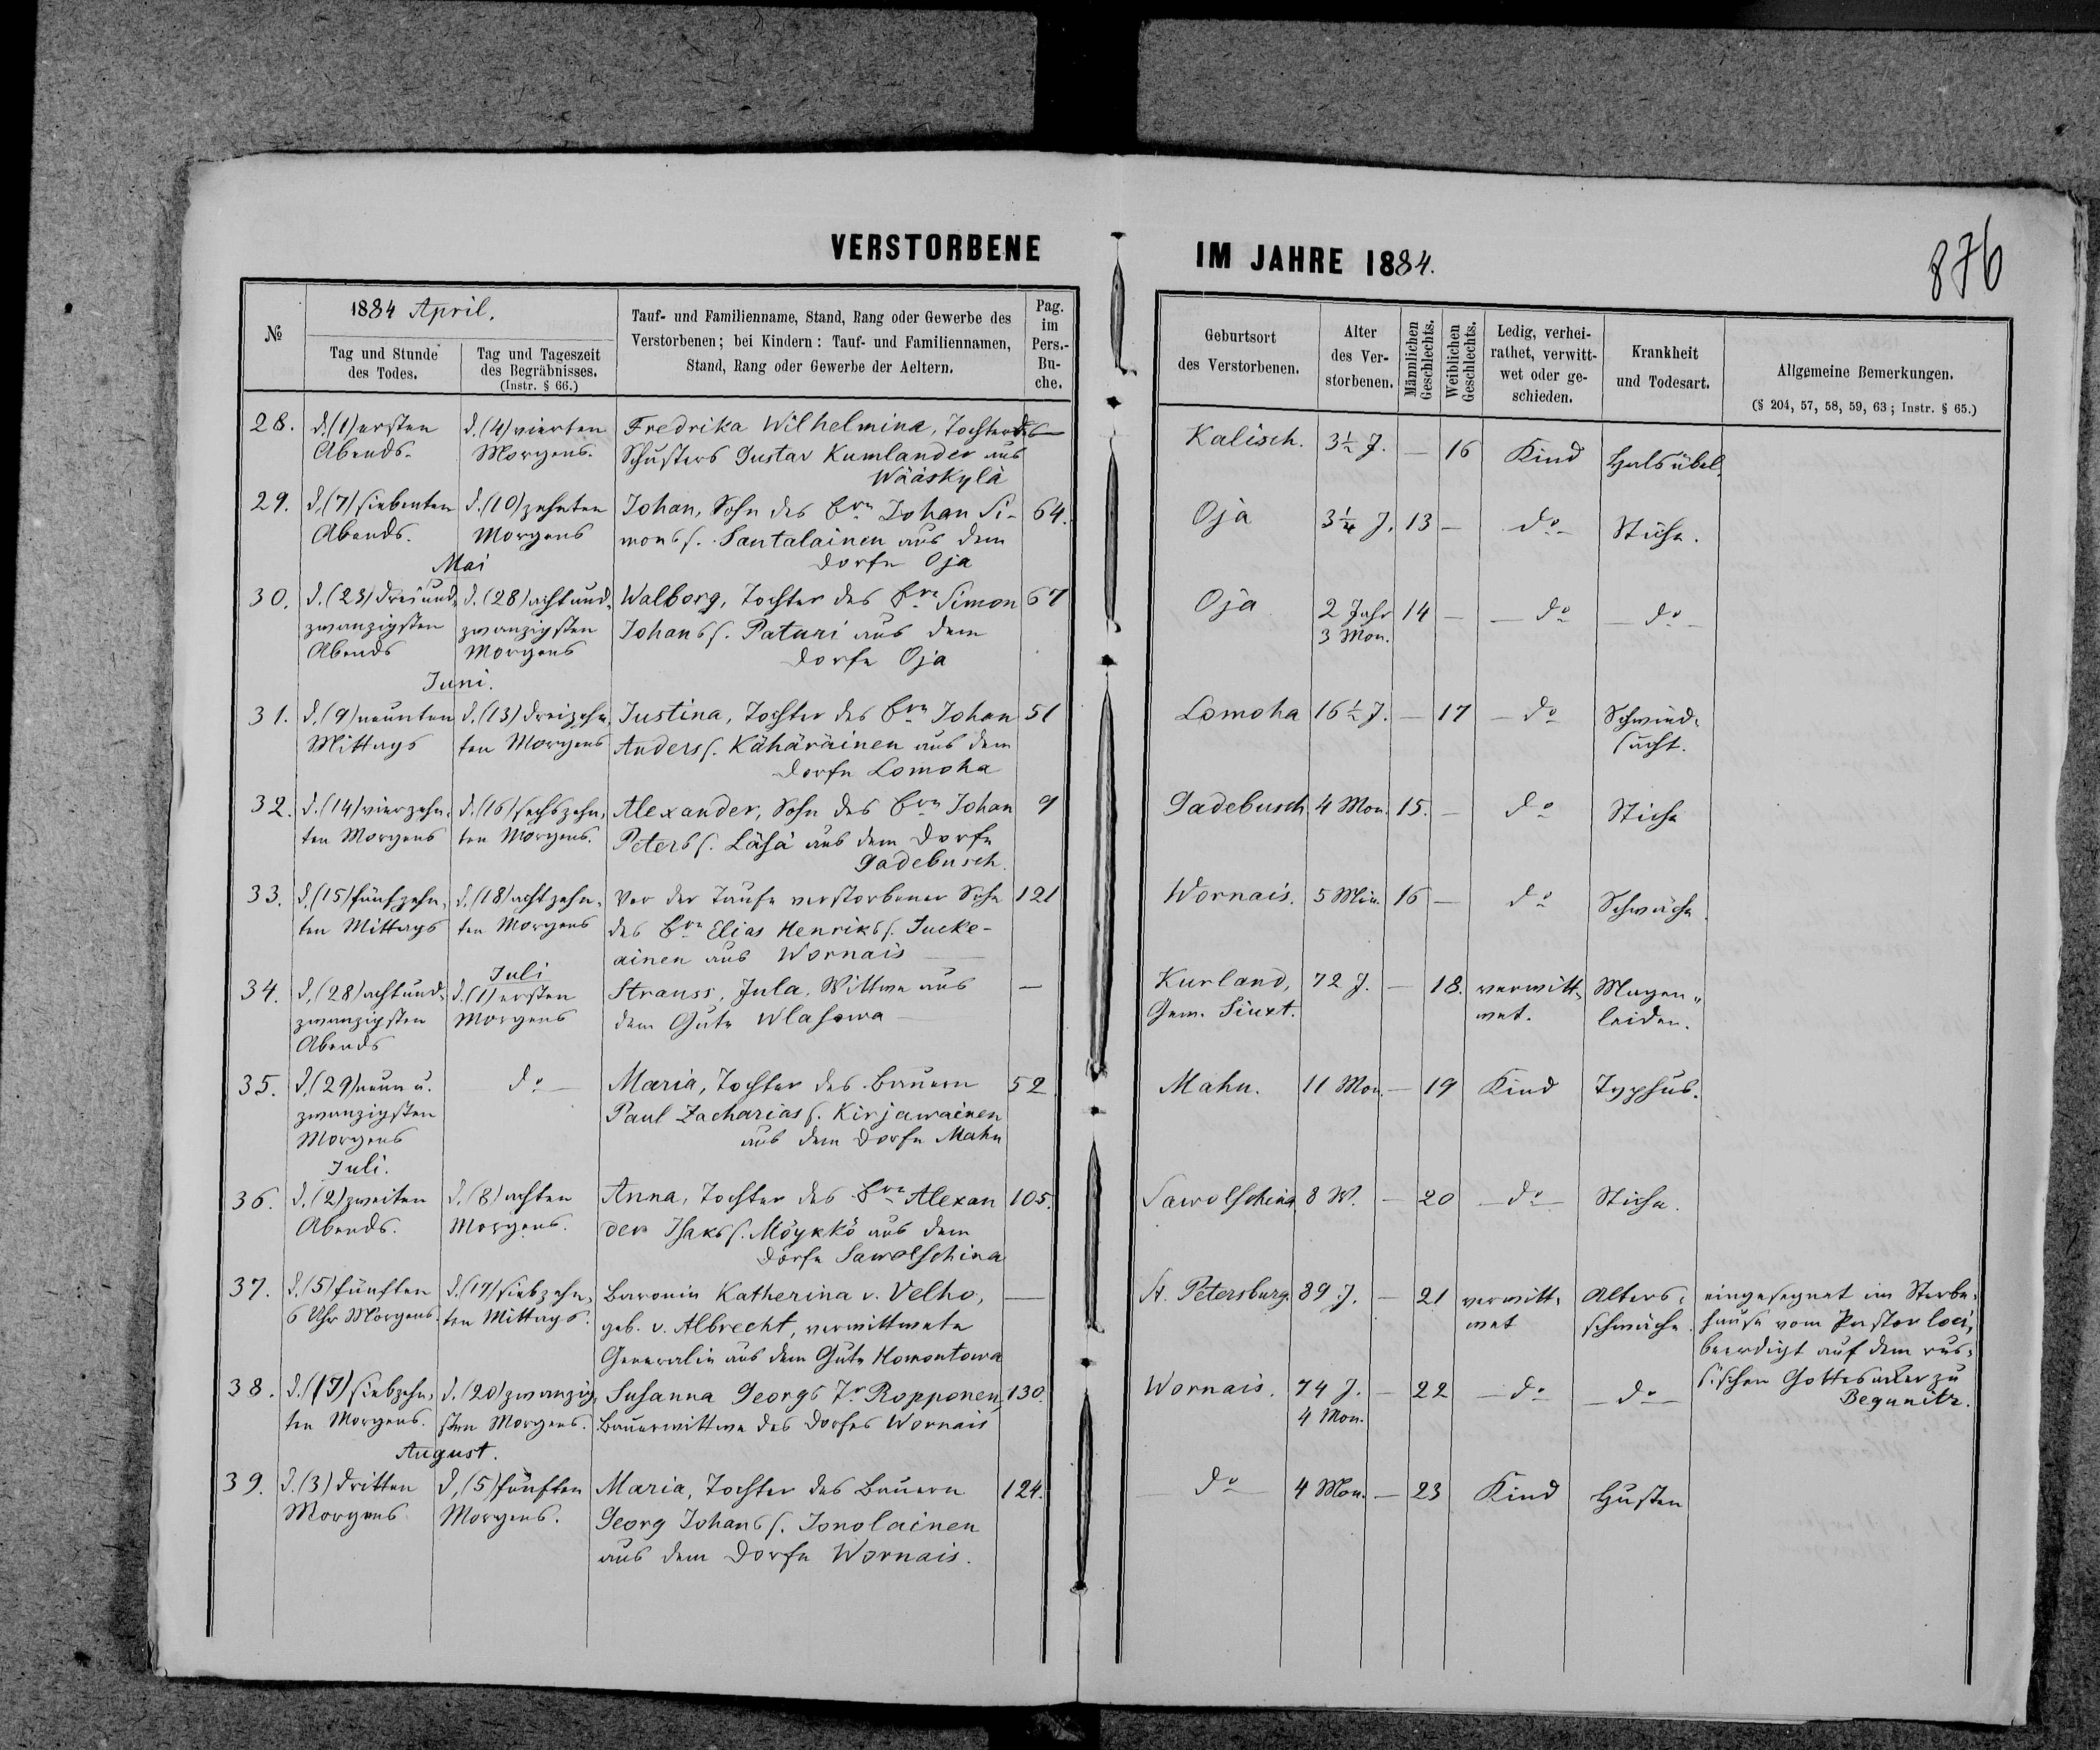 VERSTORBENE
IM JAHRE 1884.
876
№
1884 April.
Tag und Stunde
des Todes.
Tag und Tageszeit
des Begräbnisses.
(Instr. § 66.)
Tauf- und Familienname, Stand, Rang oder Gewerbe des
Verstorbenen; bei Kindern: Tauf- und Familiennamen,
Stand, Rang oder Gewerbe der Aeltern.
Pag.
im
Pers.-
Bu-
che.
Geburtsort
des Verstorbenen.
Alter
des Ver-
storbenen.
Männlichen
Geschlechts.
Weiblichen
Geschlechts.
Ledig, verhei-
rathet, verwitt-
wet oder ge-
schieden.
Krankheit
und Todesart.
Allgemeine Bemerkungen.
(§ 204, 57, 58, 59, 63; Instr. § 65.)
28. d. (1) ersten d. (4) vierten Fredrika Wilhelmina, Tochter des — Kalisch. 3½ J. — 16 Kind Halsübel
Abends. Morgens. Schusters Gustav Kumlander aus
Wääskylä
29. d. (7) siebenten d. (10) zehnten Johan, Sohn des Brn Johan Si- 64. Oja 3¼ J. 13 — do Stiche.
Abends. Morgens mons s. Santalainen aus dem
Dorfe Oja
Mai
30. d. (23) drei und d. (28) acht und Walborg, Tochter des Brn Simon 67 Oja 2 Jahr 14 — do do
zwanzigsten zwanzigsten Johans s. Paturi aus dem 3 Mon.
Abends Morgens Dorfe Oja
Juni.
31. d. (9) neunten d. (13) dreizehn- Justina, Tochter des Brn Johan 51 Lomoha 16½ J. — 17 do Schwind-
Mittags ten Morgens Anders s. Kähäräinen aus dem sucht.
Dorfe Lomoha
32. d. (14) vierzehn- d. (16) sechszehn- Alexander, Sohn des Brn Johan 9 Gadebusch 4 Mon. 15. — do Stiche
ten Morgens ten Morgens. Peters s. Läsä aus dem Dorfe
Gadebusch.
33. d. (15) fünfzehn- d. (18) achtzehn- Vor der Taufe verstorbener Sohn 121 Wornais. 5 Min. 16 — do Schwäche.
ten Mittags ten Morgens des Brn Elias Henriks s. Jucke-
ainen aus Wornais
Juli
34. d. (28) acht und d. (1) ersten Strauss, Jula, Wittwe aus — Kurland, 72 J. — 18. verwitt- Magen-
zwanzigsten Morgens dem Gute Wlasowa Gem. Siuxt. wet. leiden.
Abends
35. d. (29) neun u. do Maria, Tochter des Bauern 52 Mahu. 11 Mon. — 19 Kind Typhus.
zwanzigsten Paul Zacharias s. Kirjawainen
Morgens aus dem Dorfe Mahu
Juli.
36. d. (2) zweiten d. (8) achten Anna, Tochter des Brn Alexan 105. Sawolschina 8 W. — 20 do Stiche.
Abends. Morgens. der Isaks s. Möykkö aus dem
Dorfe Sawolschina
37. d. (5) fünften d. (17) siebzehn- Baronin Katherina v. Velho, — St. Petersburg. 89 J. — 21 verwitt- Alters- eingesegnet im Sterbe-
6 Uhr Morgens. ten Mittags. geb. v. Albrecht, verwittwete wet schwäche. hause vom Pastor loci,
Generalin aus dem Gute Homontowa beerdigt auf dem rus-
sischen Gottesacker zu
Begunitz.
38. d. (17) siebzehn- d. (20) zwanzig- Susanna Georgs Tr Ropponen, 130. Wornais. 74 J. — 22 do do
ten Morgens. sten Morgens. Bauerwittwe des Dorfes Wornais 4 Mon.
August.
39. d. (3) dritten d. (5) fünften Maria, Tochter des Bauern 124. do 4 Mon. — 23 Kind Husten
Morgens Morgens. Georg Johans s. Jonolainen
aus dem Dorfe Wornais.